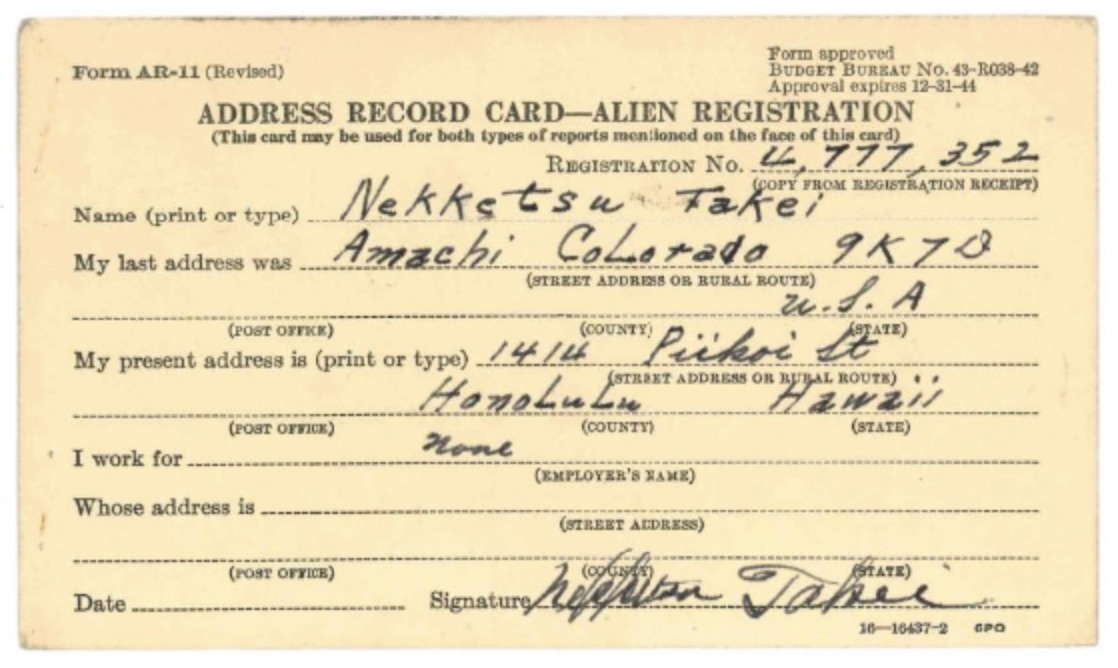 Form AR-11 (Revised)
Form approved
BUDGET BUREAU No. 43-R038-42
Approval expires 12-31-44
ADDRESS RECORD CARD—ALIEN REGISTRATION
(This card may be used for both types of reports mentioned on the face of this card)
REGISTRATION No. 4,777,352
(COPY FROM REGISTRATION RECEIPT)
Name (print or type) Nekketsu Takei
My last address was Amachi Colorado 9K 7D
(STREET ADDRESS OR RURAL ROUTE)
U.S.A
(POST OFFICE) (COUNTY) (STATE)
My present address is (print or type) 1414 Piikoi St
(STREET ADDRESS OR RURAL ROUTE)
Honolulu Hawaii
(POST OFFICE) (COUNTY) (STATE)
I work for None
(EMPLOYER'S NAME)
Whose address is
(STREET ADDRESS)
(POST OFFICE) (COUNTY) (STATE)
Date Signature Nekketsu Takei
16—16437-2 GPO